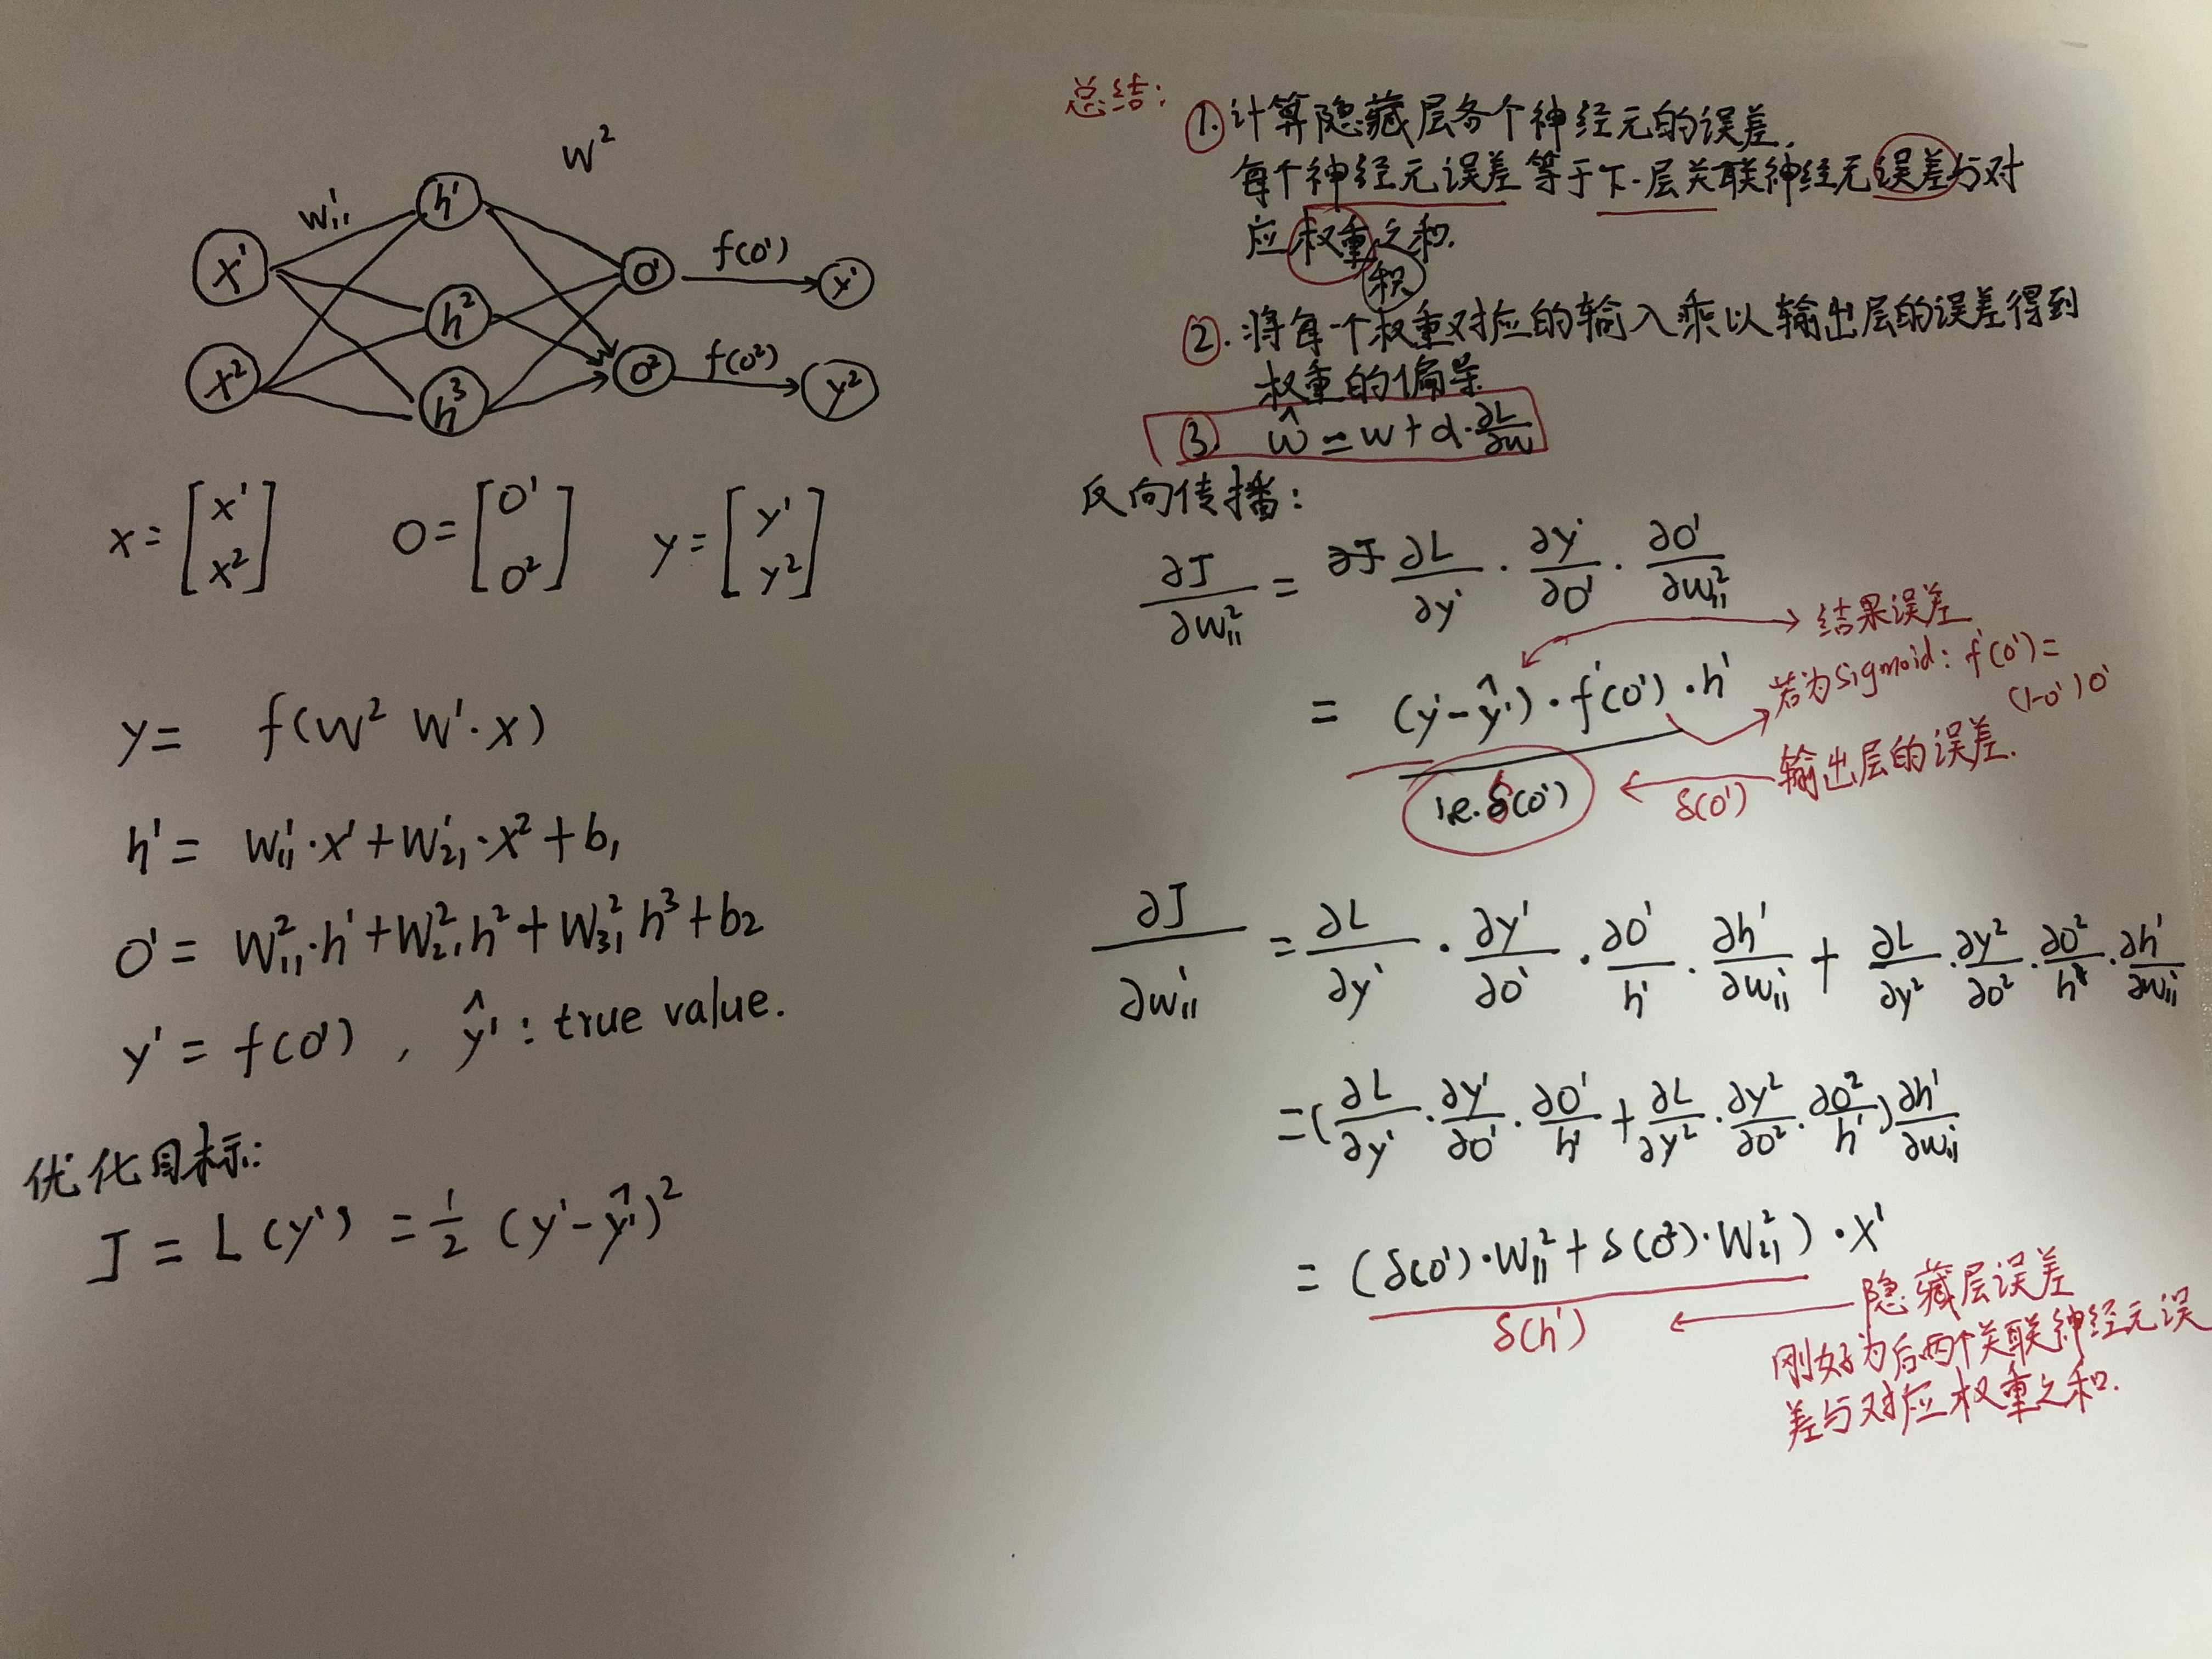 W²
W¹₁₁
x¹ h¹ O¹ f(O¹) y¹
h²
x² h³ O² f(O²) y²
x = [x¹ x²] O = [O¹ O²] y = [y¹ y²]
y = f(W² W¹·x)
h¹ = W¹₁₁·x¹ + W¹₂₁·x² + b₁
O¹ = W²₁₁·h¹ + W²₂₁·h² + W²₃₁h³ + b2
y¹ = f(O¹) , ŷ¹ : true value.
优化目标:
J = L(y¹) = 1/2 (y¹ - ŷ¹)²
总结:
①.计算隐藏层各个神经元的误差.
每个神经元误差等于下一层关联神经元误差与对
应权重之积.
和
②.将每一个权重对应的输入乘以输出层的误差得到
权重的偏导
③ ŵ = w + d·∂L/∂w
反向传播:
∂J/∂W²₁₁ = ∂L/∂y¹ · ∂y¹/∂O¹ · ∂O¹/∂W²₁₁
→结果误差
= (y¹ - ŷ¹)·f'(O¹)·h¹
若为sigmoid: f'(O¹) =
(1-O¹)O¹
δ(O¹) δ(O¹) 输出层的误差.
∂J/∂W¹₁₁ = ∂L/∂y¹ · ∂y¹/∂O¹ · ∂O¹/h¹ · ∂h¹/∂W¹₁₁ + ∂L/∂y² · ∂y²/∂O² · ∂O²/h¹ · ∂h¹/∂W¹₁₁
= (∂L/∂y¹ · ∂y¹/∂O¹ · ∂O¹/h¹ + ∂L/∂y² · ∂y²/∂O² · ∂O²/h¹) ∂h¹/∂W¹₁₁
= (δ(O¹)·W²₁₁ + δ(O²)·W²₂₁)·x¹
δ(h¹)
隐藏层误差
刚好为后两个关联神经元误
差与对应权重之和.